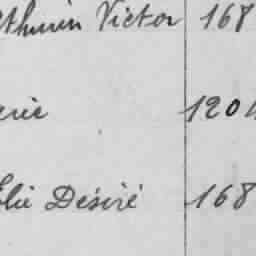 thurin Victor 168
erie 120
Elie Désiré 168